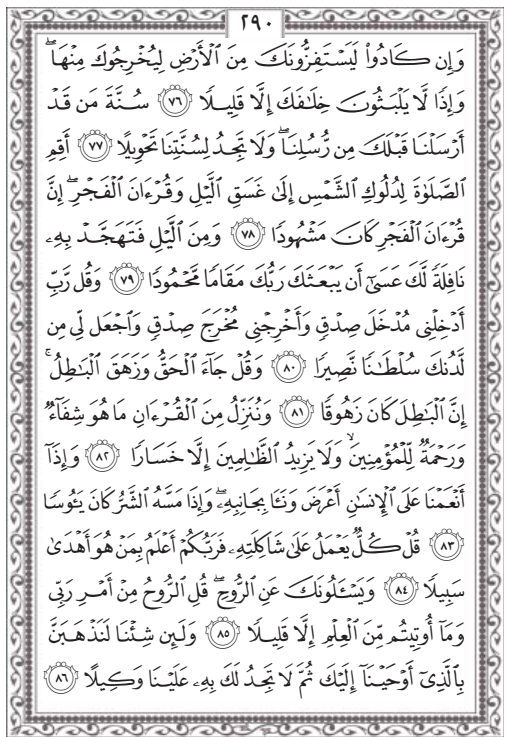 ٢٩٠
وَإِن كَادُواْ لَيَسْتَفِزُّونَكَ مِنَ ٱلْأَرْضِ لِيُخْرِجُوكَ مِنْهَاۖ
وَإِذٗا لَّا يَلْبَثُونَ خِلَٰفَكَ إِلَّا قَلِيلٗا ٧٦ سُنَّةَ مَن قَدْ
أَرْسَلْنَا قَبْلَكَ مِن رُّسُلِنَاۖ وَلَا تَجِدُ لِسُنَّتِنَا تَحْوِيلًا ٧٧ أَقِمِ
ٱلصَّلَوٰةَ لِدُلُوكِ ٱلشَّمْسِ إِلَىٰ غَسَقِ ٱلَّيْلِ وَقُرْءَانَ ٱلْفَجْرِۖ إِنَّ
قُرْءَانَ ٱلْفَجْرِ كَانَ مَشْهُودٗا ٧٨ وَمِنَ ٱلَّيْلِ فَتَهَجَّدْ بِهِۦ
نَافِلَةٗ لَّكَ عَسَىٰٓ أَن يَبْعَثَكَ رَبُّكَ مَقَامٗا مَّحْمُودٗا ٧٩ وَقُل رَّبِّ
أَدْخِلْنِي مُدْخَلَ صِدْقٖ وَأَخْرِجْنِي مُخْرَجَ صِدْقٖ وَٱجْعَل لِّي مِن
لَّدُنكَ سُلْطَٰنٗا نَّصِيرٗا ٨٠ وَقُلْ جَآءَ ٱلْحَقُّ وَزَهَقَ ٱلْبَٰطِلُۚ
إِنَّ ٱلْبَٰطِلَ كَانَ زَهُوقٗا ٨١ وَنُنَزِّلُ مِنَ ٱلْقُرْءَانِ مَا هُوَ شِفَآءٞ
وَرَحْمَةٞ لِّلْمُؤْمِنِينَۙ وَلَا يَزِيدُ ٱلظَّٰلِمِينَ إِلَّا خَسَارٗا ٨٢ وَإِذَآ
أَنْعَمْنَا عَلَى ٱلْإِنسَٰنِ أَعْرَضَ وَنَـَٔا بِجَانِبِهِۦۖ وَإِذَا مَسَّهُ ٱلشَّرُّ كَانَ يَـُٔوسٗا
٨٣ قُلْ كُلّٞ يَعْمَلُ عَلَىٰ شَاكِلَتِهِۦ فَرَبُّكُمْ أَعْلَمُ بِمَنْ هُوَ أَهْدَىٰ
سَبِيلٗا ٨٤ وَيَسْـَٔلُونَكَ عَنِ ٱلرُّوحِۖ قُلِ ٱلرُّوحُ مِنْ أَمْرِ رَبِّي
وَمَآ أُوتِيتُم مِّنَ ٱلْعِلْمِ إِلَّا قَلِيلٗا ٨٥ وَلَئِن شِئْنَا لَنَذْهَبَنَّ
بِٱلَّذِيٓ أَوْحَيْنَآ إِلَيْكَ ثُمَّ لَا تَجِدُ لَكَ بِهِۦ عَلَيْنَا وَكِيلًا ٨٦